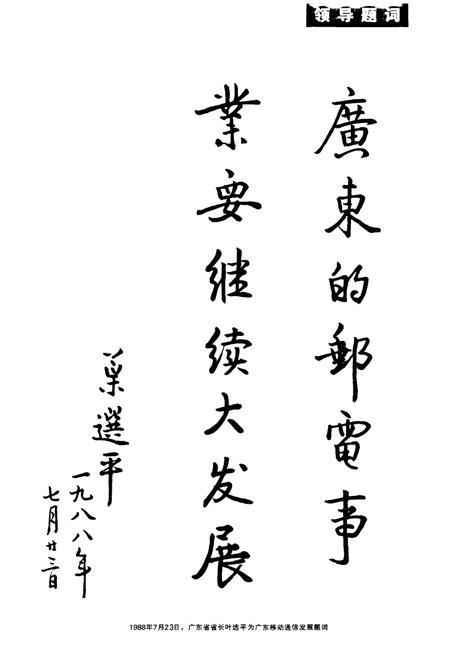 领导题词
廣東的郵電事
業要继续大发展
葉選平
一九八八年
七月廿三日
1988年7月23日，广东省省长叶选平为广东移动通信发展题词